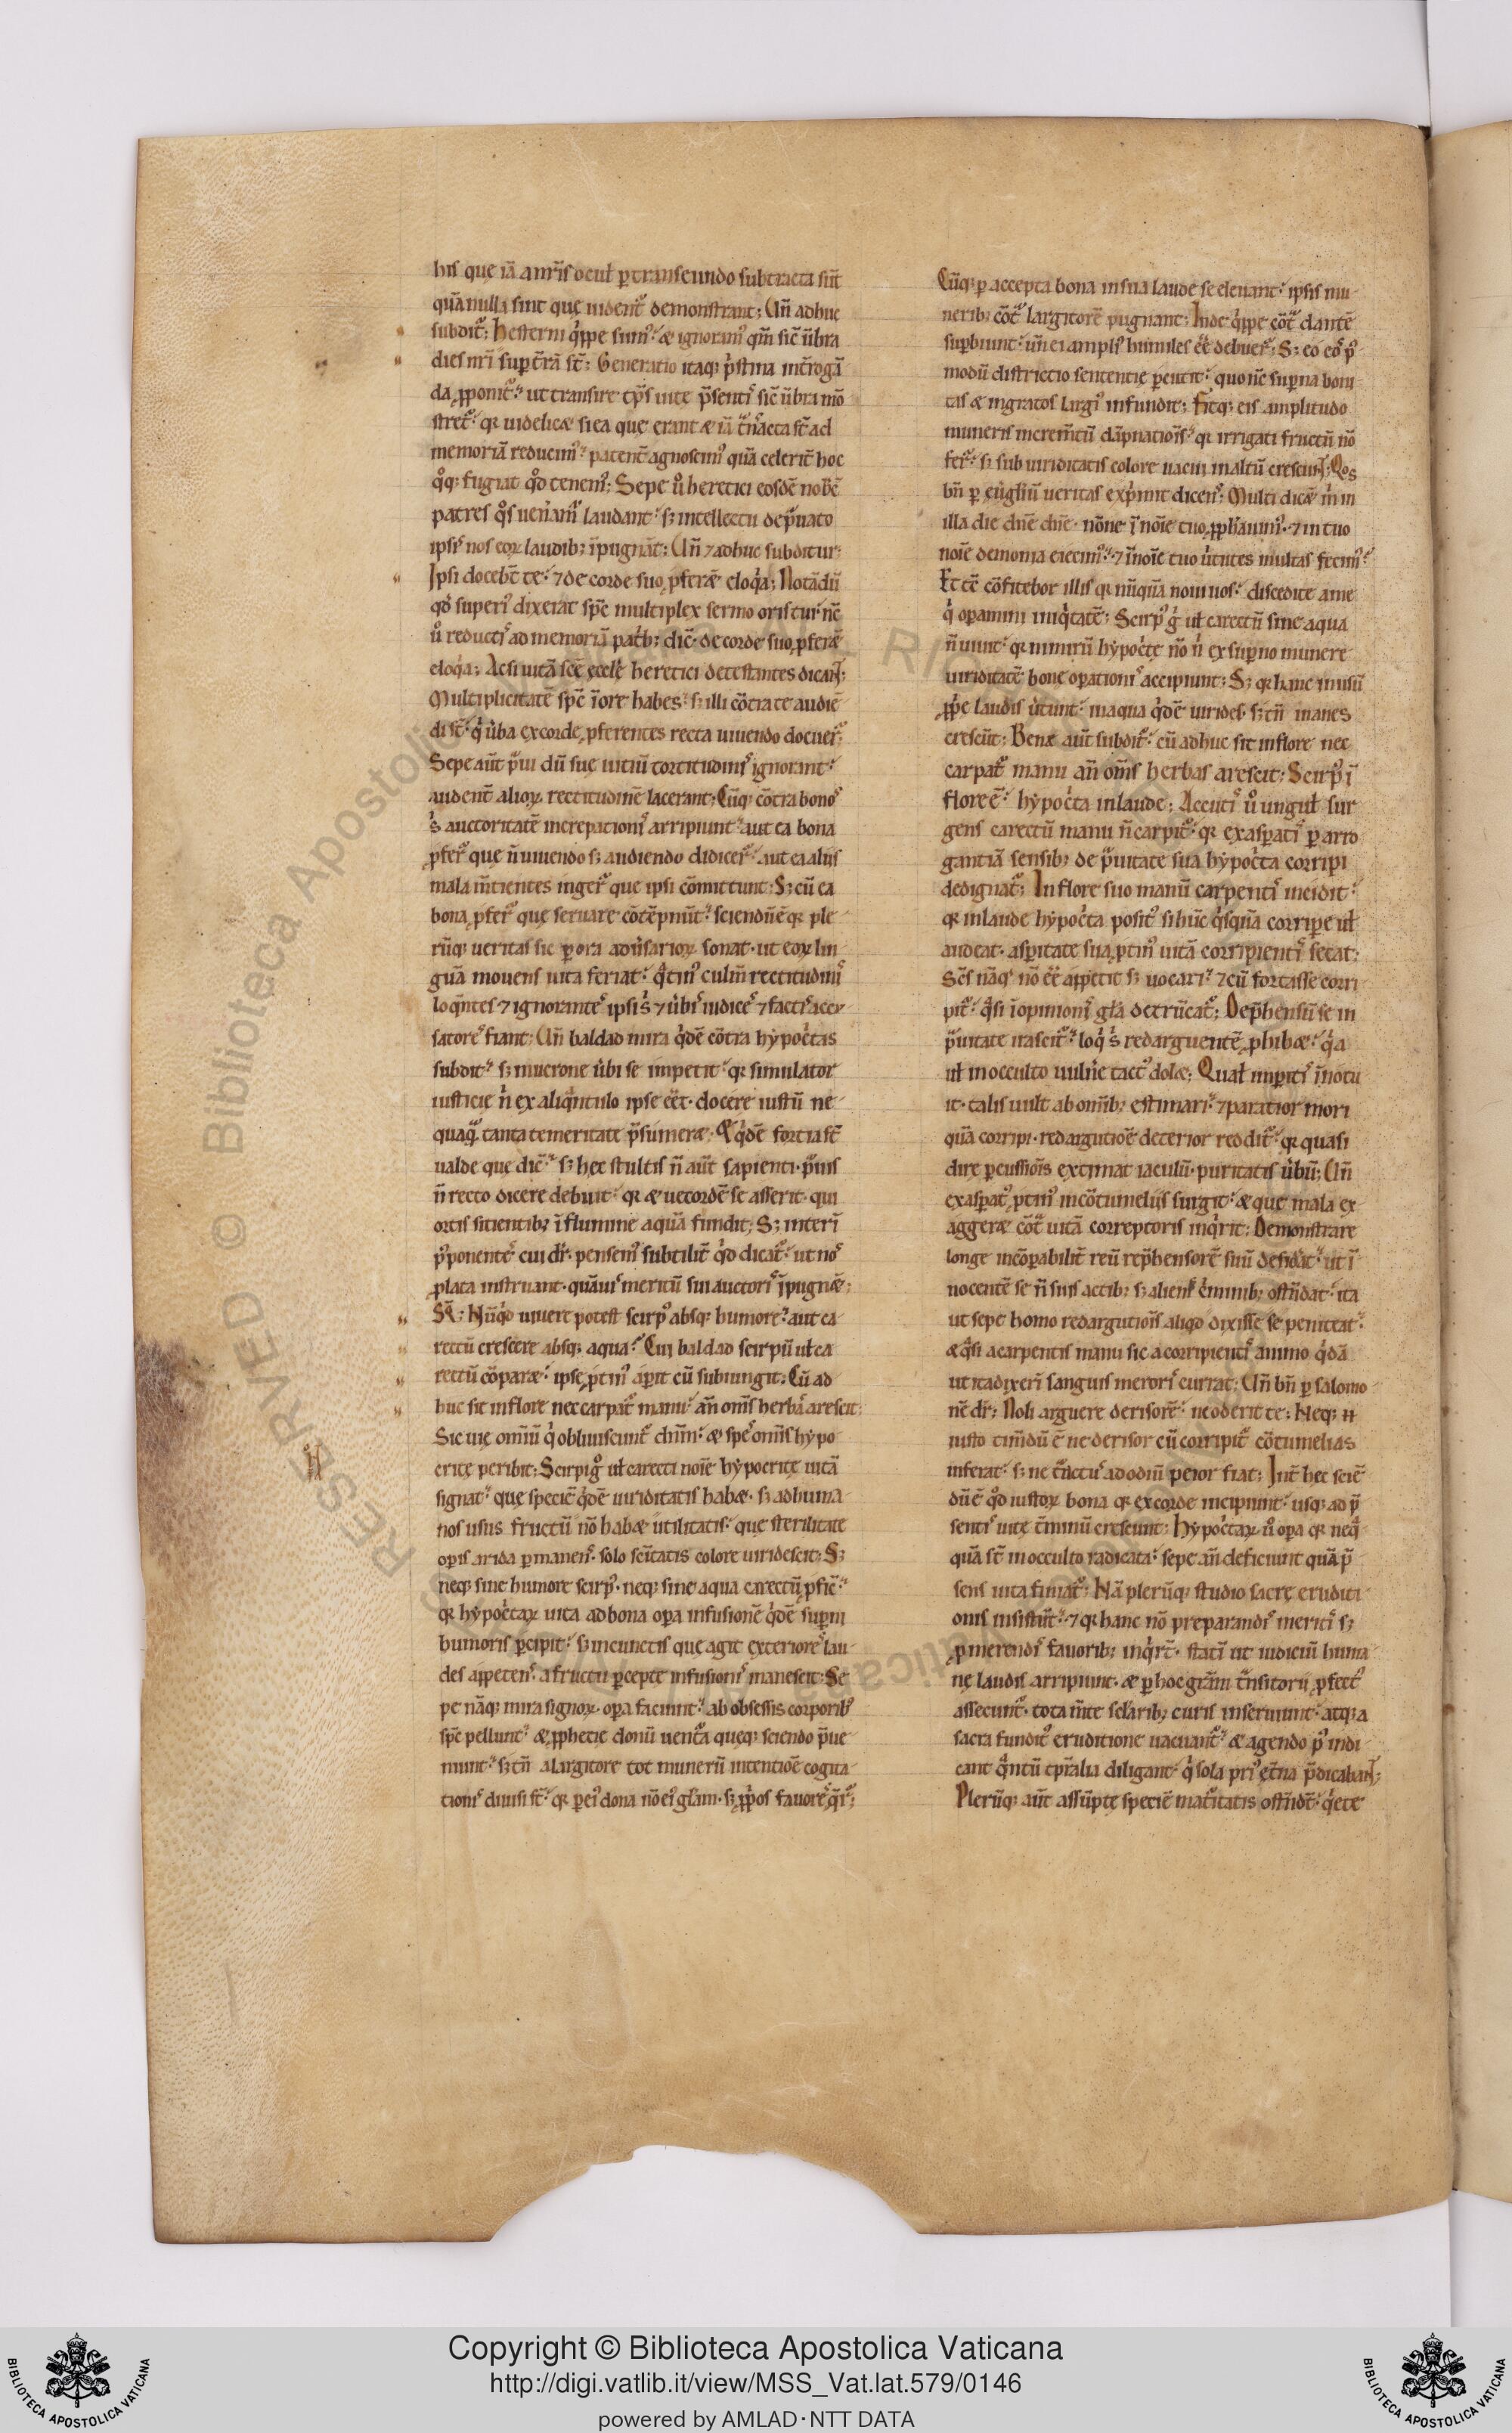 his que iā a nr̄is ocul̄ ptranseundo subtracta sūt
quā nulla sint que uident᷑ demonstrant; Vn̄ adhuc
subdit᷑; Hesterni q̇ppe sum᷒ & ignoram᷒ qm̄ sic̄ ūbra
dies nr̄i sup t̄rā st̄; Generatio itaq; ṗstina int̄rogā
da ꝓponit᷑ ut transire tp̄s uite p̄sentis sic̄ ūbrā mō
stret᷑ qr uidelic& si ea que erant & iā t̄nsacta st̄ ad
memoriā reducim᷒ patent̄ agnoscim᷒ quā celerit̄ hoc
q̊q; fugiat q̊d tenem᷒; Sepe ů heretici eosdē nobc̄
patres q̊s uen̄amr̄ laudant s; intellectu dep̄uato
ipsis nos eoꝝ laudib; īpugnāt; Vn̄ ⁊ adhuc subditur;
Ipsi docebt̄ te ⁊ de corde suo ꝓferāt eloq̇a; Notādū
qd̄ superi᷒ dixerat spc̄ multiplex sermo oris tui nc̄
ů reductis ad memoriā patīb; dic̄ de corde suo ꝓferāt
eloq̇a; Acsi uitā sc̄e ecclē heretici detestantes dicant;
Multiplicitatē spc̄ ī ore habes s; illi cōtra te audiē
di st̄ q̇ ūba ex corde ꝓferentes recta uiuendo docuer᷑;
Sepe aūt p̄ui dū sue uitiū tortitudinis ignorant
audent alioꝝ rectitudinē lacerant; Cūq; cōtra bonos
s̓ auctoritatē increpationis arripiunt aut ea bona
ꝓfer᷑ que n̄ uiuendo s; audiendo didicer᷑ aut ea aliis
mala m̄tientes inger᷑ que ipsi cōmittunt; S; cū ea
bona ꝓfer᷑ que seruare cōtēpnūt sciendū ē qr ple
rūq; ueritas sic p ora adūsarioꝝ sonat ut eoꝝ lin
guā mouens uita feriat q̄tin᷒ culm̄ rectitudinis
loq̄ntes ⁊ ignorantes ipsi s̓ ⁊ ūbis iudices ⁊ factis accu
satores fiant; Vn̄ baldad mira q̇dē cōtra hypoc̓tas
subdit s; mucrone ūbi se impetit qr simulator
iusticie n̓ ex aliq̄ntulo ipse ēēt docere iustū ne
quaq̄ tanta temeritate p̄sumer&; Et q̇dē fortia st̄
ualde que dic̄ s; hec stultis n̄ aūt sapienti p̄uis
n̄ recto dicere debuit qr & uecordē se asserit qui
ortis sitientib; ī flumine aquā fundit; S; interī
p᷒ponentes cui dr̄ pensem᷒ subtilit̄ q̊d dicat᷑ ut nos
plata instruant quāuis meritū sui auctoris īpugn&;
Nūq̊d uiuere potest scirp᷒ absq; humore aut ca
rectū crescere absq; aqua Cui baldad scirpū ul̄ ca
rectū cōpar& ipse ꝓtin᷒ apit cū subiungit; Cū ad
huc sit in flore nec carpat᷑ manu an̄ om̄s herbas arescit;
Sic uie omīū q̇ obliuiscunt᷑ dn̄m & spes om̄is hypo
crite peribit; Scirpi g̊ ul̄ carecti noīe hypocrite uitā
signat que speciē q̇dē uiriditatis hab& s; ad huma
nos usus fructū nō hab& utilitatis que sterilitate
opis arida pmanens solo sc̄itatis colore uiridescit; S;
neq; sine humore scirp᷒ neq; sine aqua carectū ꝓfic̄
qr hypoc̓taꝝ uita ad bona opa infusionē q̇dē supni
humoris pcipit s; in cunctis que agit exteriores lau
des appetens a fructu pcepte infusionis manescit; Se
pe nāq; mira signoꝝ opa faciunt ab obsessis corporib᷒
spc̄ pellunt & ꝓphetie donū uent̄a queq; sciendo p̄ue
niunt s; tn̄ a largitore tot munerū intentiōe cogita
tionis diuisi st̄ qr p ei᷒ dona nō ei᷒ glām s; ꝓp̓os fauores q̄r᷑;
Cūq; p accepta bona in sua laude se eleuant ipsis mu
nerib; cōt̄ largitorē pugnant; Inde q̇ppe cōt̄ dantē
supbiunt uñ ei ampli᷒ humiles ēē debuer᷑; S; eo eos p᷒
modū districtio sententie peutit quo nc̄ supna boni
tas & ingratos largi᷒ infundit; Fitq; eis amplitudo
muneris increm̄tū dāpnatiōis qr irrigati fructū nō
fer᷑ s; sub uiriditatis colore uacui in altū crescunt; Qos
bn̄ p eugl̄iū ueritas exp̓mit dicens; Multi dic& m̓ in
illa die dn̄e dn̄e nōne ī noīe tuo ꝓph̄auim᷒ ⁊ in tuo
noīe demonia eiecim᷒ ⁊ ī noīe tuo ūtutes multas fecim᷒
Et tē cōfitebor illis qr nūquā noui uos discedite a me
q̇ opamini iniq̇tatē; Scirp᷒ g̓ ul̄ carectū sine aqua
n̄ uiuit qr nimirū hypoc̓te nō n̓ ex supno munere
uiriditatē bone opationis accipiunt; S; qr hanc in usū
ꝓp̓e laudis ūtunt in aqua q̇dē uirides s; tn̄ inanes
crescūt; Bene aūt subdit᷑ cū adhuc sit in flore nec
carpat᷑ manu an̄ om̄s herbas arescit; Scirp᷒ ī
flore ē hypoc̓ta in laude; Acutis ů ungul̄ sur
gens carectū manu n̄ carpit᷑ qr exaspatis p arro
gantiā sensib; de p̄uitate sua hypoc̓ta corripi
dedignat᷑; In flore suo manū carpentis incidit
qr in laude hypoc̓ta posit᷒ si hūc q̇squā corripe ul̄
audeat aspitate sua ꝓtin᷒ uitā corripientis secat;
Sc̄s nāq; nō ēē appetit s; uocari ⁊ cū fortasse corri
pit᷑ q̄si ī opinionis gl̄a detrūcat᷑; Dep̄hensū se in
p̄uitate irascit᷑ loq̇ s̓ redarguentē ꝓhib& q̇a
ul̄ in occulto uuln̓e tact᷒ dol&; Qual̄ impitis īnotu
it talis uult ab om̄ib; estimari ⁊ paratior mori
quā corripi redargutiōe deterior reddit᷑ qr quasi
dire pcussiōis extimat iaculū puritatis ūbū; Vn̄
exaspat᷒ ꝓtin᷒ in cōtumeliis surgit & que mala ex
agger& cōt̄ uitā correptoris inq̇rit; Demonstrare
longe incōpabilit̄ reū rep̄hensorē suū desid̓at ut ī
nocentē se n̄ suis actib; s; alienis c̓minib; ostn̄dat ita
ut sepe homo redargutiōis aliqd dixisse se peniteat
& q̄si a carpentis manu sic a corripientis animo q̇dā
ut ita dixeri sanguis meroris currat; Vn̄ bn̄ p salomo
nē dr̄; Noli arguere derisorē ne oderit te; Neq; n̄
iusto tim̄dū ē ne derisor cū corripit᷑ cōtumelias
inferat s; ne t̄ctus ad odiū peior fiat; Int̄ hec sciē
dū ē q̊d iustoꝝ bona qr ex corde incipiunt usq; ad p̄
sentis uite t̄minū crescunt; Hypoc̓taꝝ ů opa qr neq̄
quā st̄ in occulto radicata sepe an̄ deficiunt quā p̄
sens uita finiat᷑; Nā plerūq; studio sacre eruditi
onis insistūt ⁊ qr hanc nō preparandis meritis s;
ꝓmerendis fauorib; inq̇rt̄ statī ut iudiciū huma
ne laudis arripiunt & p hoc grām t̄nsitorii ꝓfect᷒
assecunt᷑ tota m̄te sel̄arib; curis inseruiunt atq; a
sacra fundit᷒ eruditione uacuant᷑ & agendo p᷒ indi
cant q̄ntū tpr̄alia diligant q̇ sola pri᷒ et̄na p̄dicabant;
Plerūq; aūt assūpte speciē mat̄itatis ostn̄dt̄ q̇ete
Copyright © Biblioteca Apostolica Vaticana
http://digi.vatlib.it/view/MSS_Vat.lat.579/0146
powered by AMLAD·NTT DATA
BIBLIOTECA APOSTOLICA VATICANA
BIBLIOTECA APOSTOLICA VATICANA